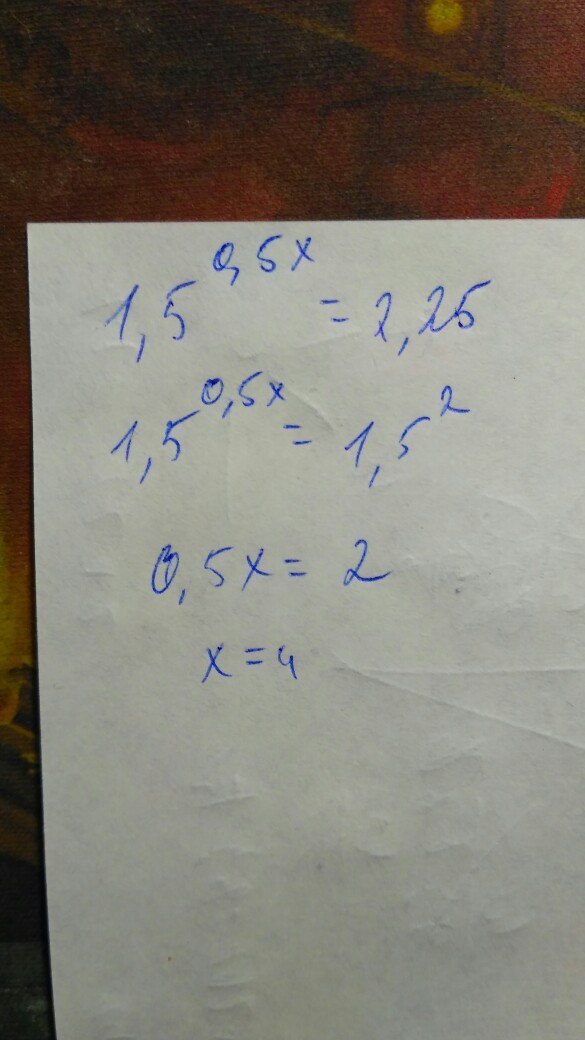 1,5^{0,5x} = 2,25
1,5^{0,5x} = 1,5^2
0,5x = 2
x = 4